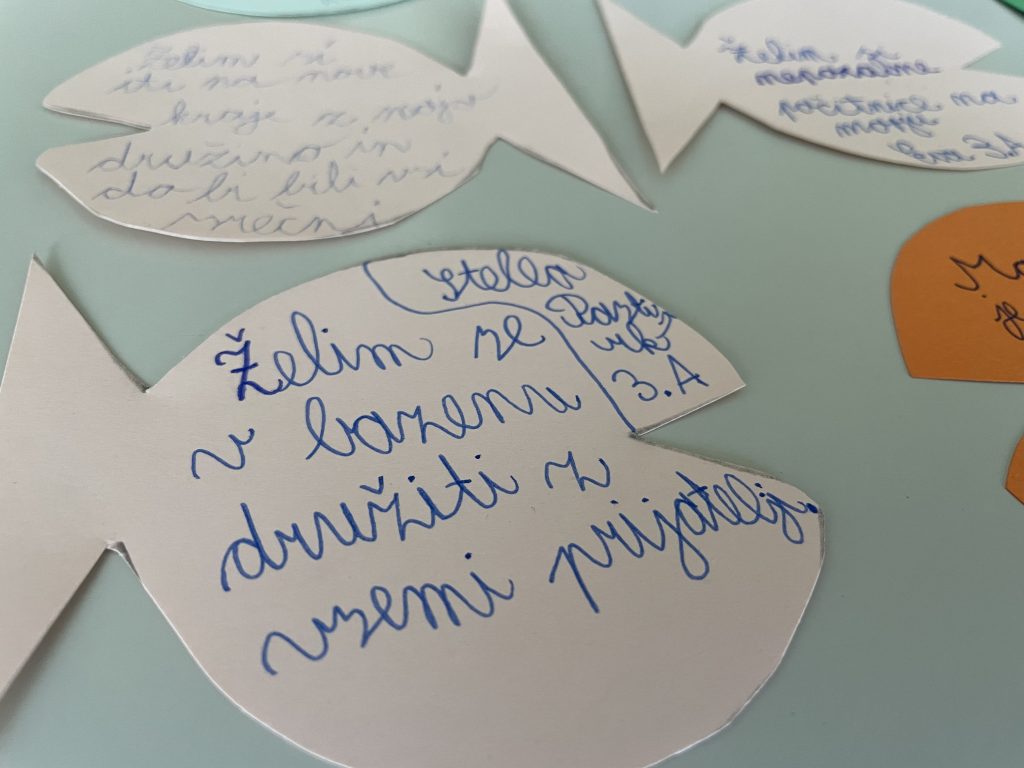 Želim si
iti na nove
kraje z mojo
družino in
da bi bili vsi
srečni
Želim si
nepozabne
počitnice na
morju
Eva 3.A
Stella
3.A
Želim se
v bazenu
družiti z
vsemi prijatelji.
je